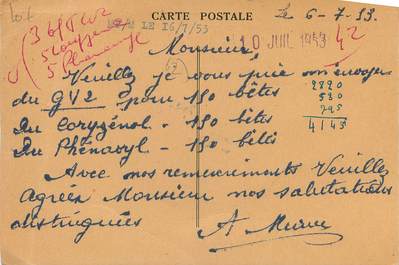 CARTE POSTALE
Le 6-7.53.
LE 16/7/53
10 JUIL 1953
42
Monsieur,
Veuillez je vous prie m'envoyer
du GV2 pour 150 bêtes
Du Coryzénol - 150 bêtes
Du Phénaoyl - 150 bêtes
2820
530
795
4145
Avec nos remerciements Veuillez
Agréer Monsieur nos salutations
distinguées